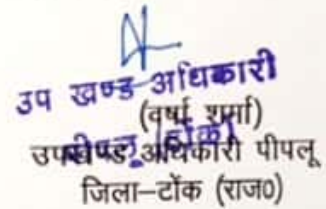 उप खण्ड अधिकारी
(वर्षा शर्मा)
पीपलू (टोंक)
उपखण्ड अधिकारी पीपलू
जिला–टोंक (राज0)